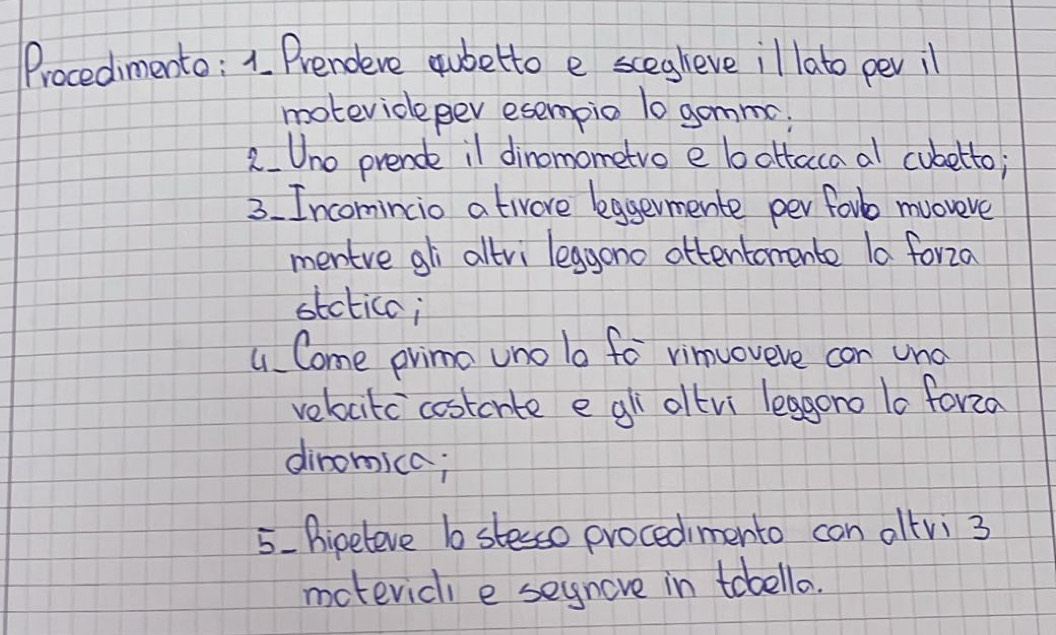 Procedimento: 1_ Prendere cubetto e scegliere il lato per il
materiale per esempio la gomma;
2_ Uno prende il dinamometro e lo attacca al cubetto;
3_ Incomincia a tirare leggermente per farlo muovere
mentre gli altri leggono attentamente la forza
statica;
4_ Come prima uno la fà rimuovere con una
velocità costante e gli altri leggono la forza
dinamica;
5_ Ripetere lo stesso procedimento con altri 3
materiali e segnare in tabella.